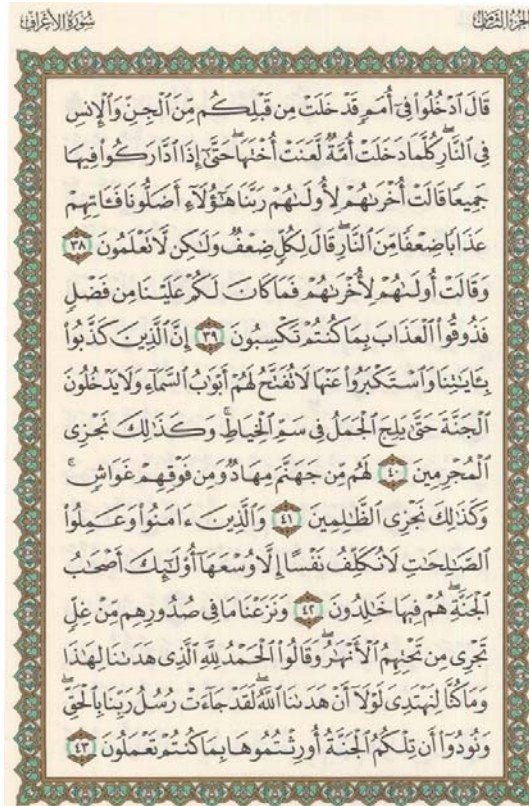 سُورَةُ الْأَعْرَافِ الجُزْءُ الثَّامِنُ
قَالَ ٱدْخُلُوا۟ فِىٓ أُمَمٍ قَدْ خَلَتْ مِن قَبْلِكُم مِّنَ ٱلْجِنِّ وَٱلْإِنسِ
فِى ٱلنَّارِ ۖ كُلَّمَا دَخَلَتْ أُمَّةٌ لَّعَنَتْ أُخْتَهَا ۖ حَتَّىٰٓ إِذَا ٱدَّارَكُوا۟ فِيهَا
جَمِيعًا قَالَتْ أُخْرَىٰهُمْ لِأُولَىٰهُمْ رَبَّنَا هَٰٓؤُلَآءِ أَضَلُّونَا فَـَٔاتِهِمْ
عَذَابًا ضِعْفًا مِّنَ ٱلنَّارِ ۖ قَالَ لِكُلٍّ ضِعْفٌ وَلَٰكِن لَّا تَعْلَمُونَ ٣٨
وَقَالَتْ أُولَىٰهُمْ لِأُخْرَىٰهُمْ فَمَا كَانَ لَكُمْ عَلَيْنَا مِن فَضْلٍ
فَذُوقُوا۟ ٱلْعَذَابَ بِمَا كُنتُمْ تَكْسِبُونَ ٣٩ إِنَّ ٱلَّذِينَ كَذَّبُوا۟
بِـَٔايَٰتِنَا وَٱسْتَكْبَرُوا۟ عَنْهَا لَا تُفَتَّحُ لَهُمْ أَبْوَٰبُ ٱلسَّمَآءِ وَلَا يَدْخُلُونَ
ٱلْجَنَّةَ حَتَّىٰ يَلِجَ ٱلْجَمَلُ فِى سَمِّ ٱلْخِيَاطِ ۚ وَكَذَٰلِكَ نَجْزِى
ٱلْمُجْرِمِينَ ٤٠ لَهُم مِّن جَهَنَّمَ مِهَادٌ وَمِن فَوْقِهِمْ غَوَاشٍ ۚ
وَكَذَٰلِكَ نَجْزِى ٱلظَّٰلِمِينَ ٤١ وَٱلَّذِينَ ءَامَنُوا۟ وَعَمِلُوا۟
ٱلصَّٰلِحَٰتِ لَا نُكَلِّفُ نَفْسًا إِلَّا وُسْعَهَآ أُو۟لَٰٓئِكَ أَصْحَٰبُ
ٱلْجَنَّةِ ۖ هُمْ فِيهَا خَٰلِدُونَ ٤٢ وَنَزَعْنَا مَا فِى صُدُورِهِم مِّنْ غِلٍّ
تَجْرِى مِن تَحْتِهِمُ ٱلْأَنْهَٰرُ ۖ وَقَالُوا۟ ٱلْحَمْدُ لِلَّهِ ٱلَّذِى هَدَىٰنَا لِهَٰذَا
وَمَا كُنَّا لِنَهْتَدِىَ لَوْلَآ أَنْ هَدَىٰنَا ٱللَّهُ ۖ لَقَدْ جَآءَتْ رُسُلُ رَبِّنَا بِٱلْحَقِّ ۖ
وَنُودُوٓا۟ أَن تِلْكُمُ ٱلْجَنَّةُ أُورِثْتُمُوهَا بِمَا كُنتُمْ تَعْمَلُونَ ٤٣